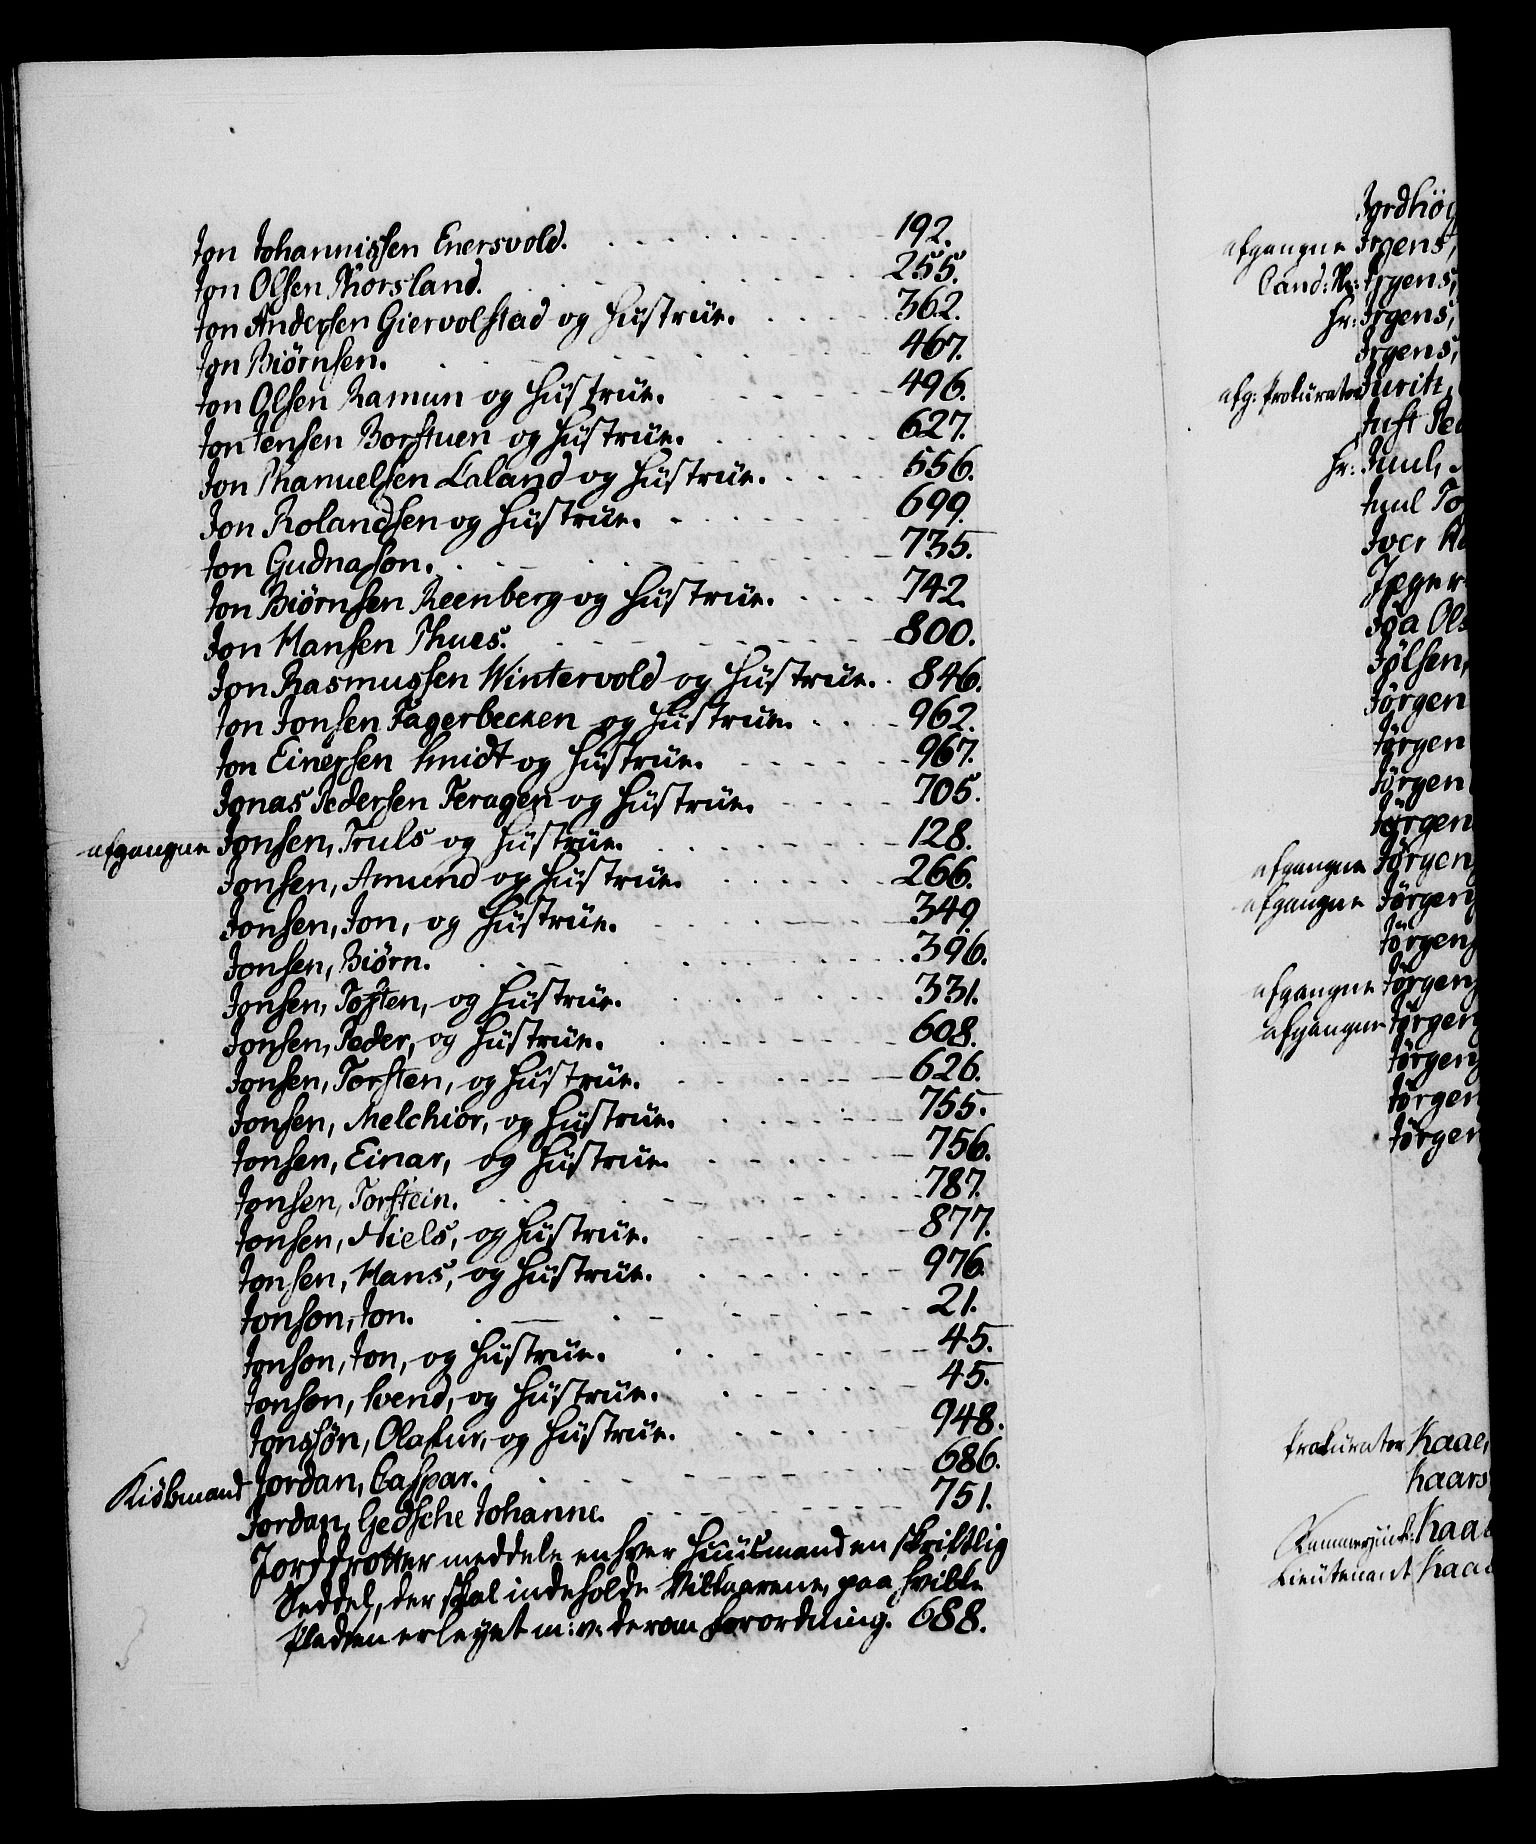 Jon Johannissen Enersvold. 192.
Jon Olsen Thorsland. 255.
Jon Andersen Giervolstad og Hustrue. 362.
Jon Biørnsen. 467.
Jon Olsen Ramun og Hustrue. 496.
Jon Jensen Borstuen og Hustrue. 627.
Jon Thanuelsen Laland og Hustrue. 556.
Jon Rolandsen og Hustrue. 699.
Jon Gudnason. 735.
Jon Biørnsen Reenberg og Hustrue. 742.
Jon Hansen Thues. 800.
Jon Rasmussen Wintervold og Hustrue. 846.
Jon Jonsen Fagerbecken og Hustrue. 962.
Jon Einersen Smidt og Hustrue. 967.
Jonas Pedersen Feragen og Hustrue. 705.
afgangne Jonsen, Truls og Hustrue. 128.
Jonsen, Amund og Hustrue. 266.
Jonsen, Jon, og Hustrue. 349.
Jonsen, Biørn. 396.
Jonsen, Tosten, og Hustrue. 331.
Jonsen, Peder, og Hustrue. 608.
Jonsen, Torsten, og Hustrue. 626.
Jonsen, Melchior, og Hustrue. 755.
Jonsen, Einar, og Hustrue. 756.
Jonsen, Torstein. 787.
Jonsen, Niels, og Hustrue. 877.
Jonsen, Hans, og Hustrue. 976.
Jonson, Jon. 21.
Jonson, Jon, og Hustrue. 45.
Jonson, Svend, og Hustrue. 45.
Jonssøn, Olafur, og Hustrue. 948.
Kiøbmand Jordan, Caspar. 686.
Jordan, Gedsche Johanne. 751.
Jorddrotter meddele enhver Huusmand en skriftlig
Seddel, der skal indeholde Vilkaarene, paa hvilke
Pladsen er leyet m: v: derom Forordning. 688.
Jordhöi
afgangne Irgens,
Cand: Irgens,
Hr: Irgens,
Irgens,
afg: Prokurator
Just Ped
Hr: Juul,
Juul To
Iver
Jøa Ols
Jølsen,
Jørgen
Jørgen
Jørgen
Jørgen
afgangne Jørgen
afgangne Jørgen
Jørgen
afgangne Jørgen
afgangne Jørgen
Jørgen
Jørgen
Jørgen
Prokurator Kaae,
Kaars
Kammerjunk: Kaa
Lieutenant Kaa